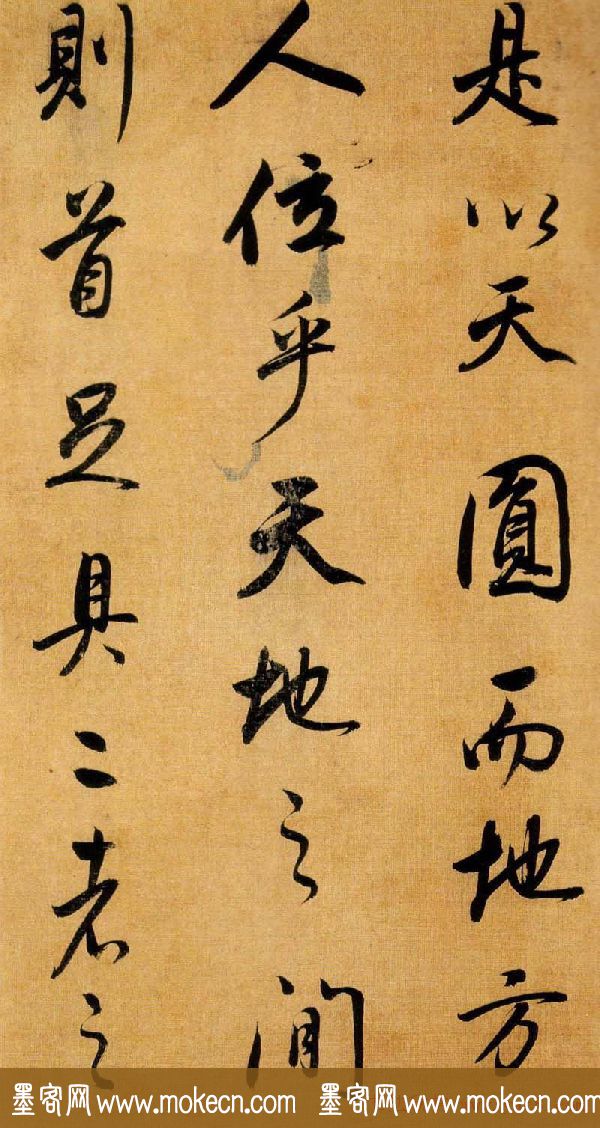 是以天圓而地方
人位乎天地之間
則首足具二者之
墨客网 www.mokecn.com 墨客网 www.mokecn.com